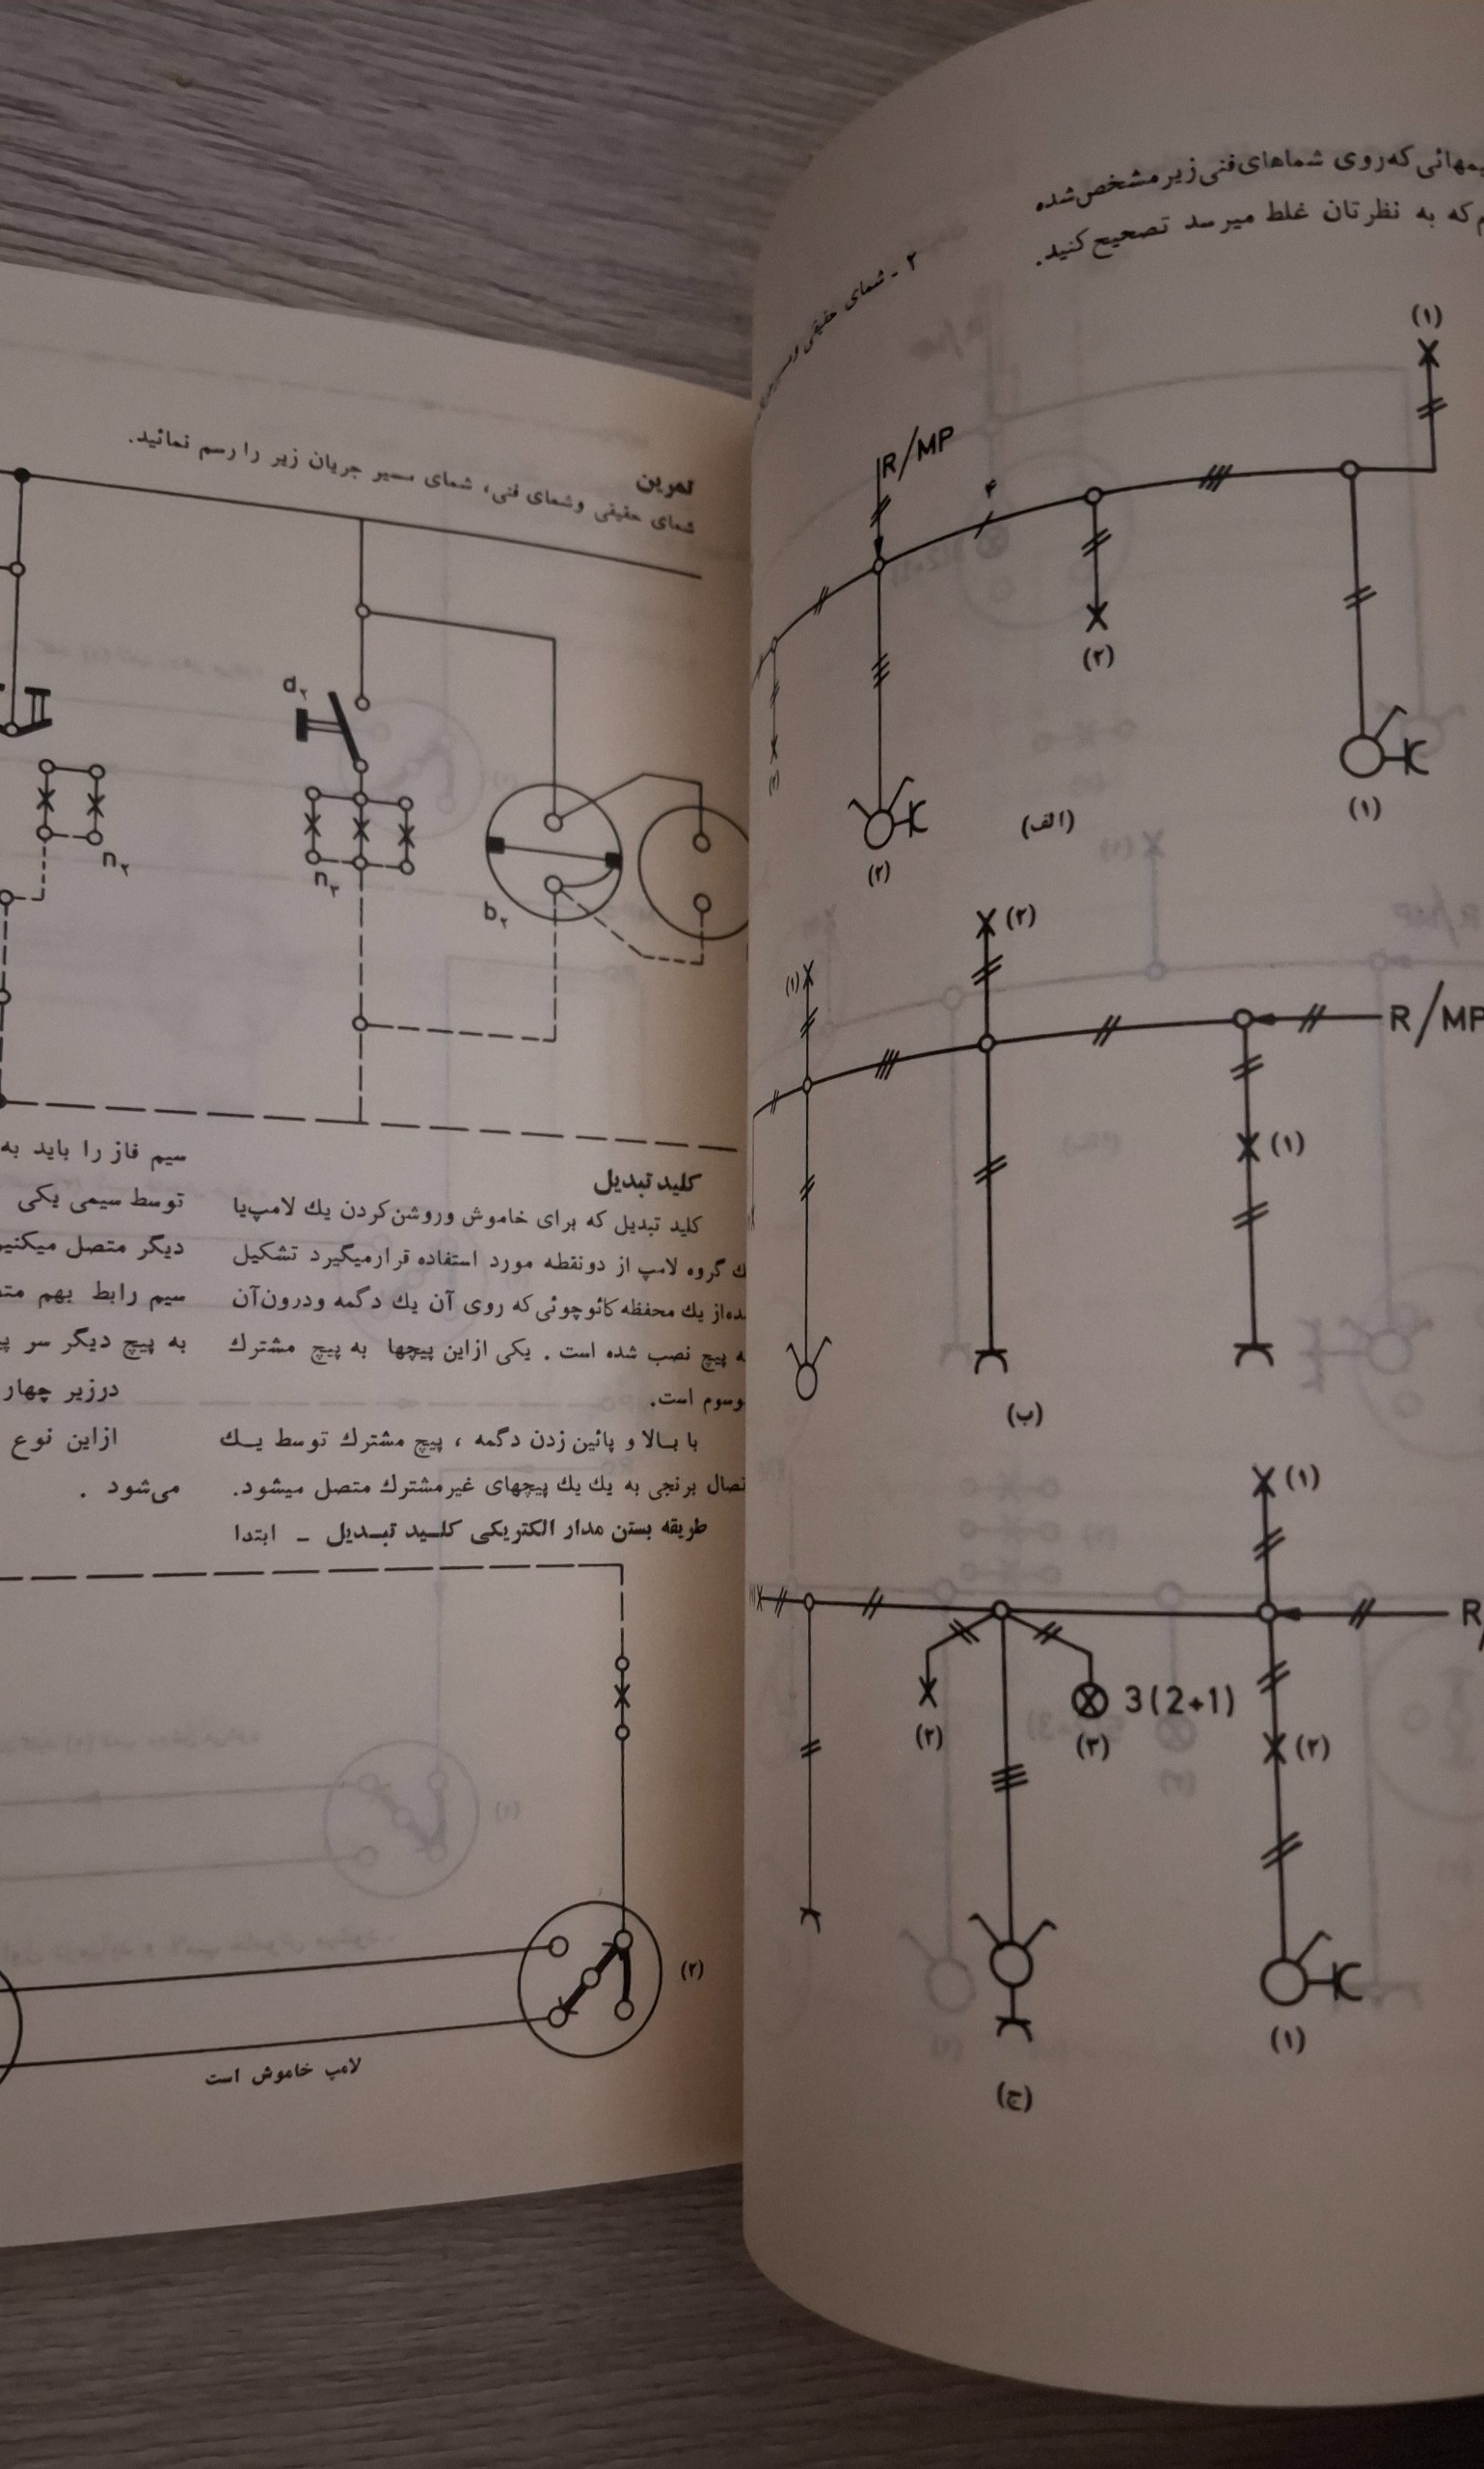 تمرین
شمای حقیقی وشمای فنی، شمای مسیر جریان زیر را رسم نمائید.
d۲
n۲
n۳
b۲
کلید تبدیل
کلید تبدیل که برای خاموش وروشن‌کردن یك لامپ‌یا
گروه لامپ از دونقطه مورد استفاده قرارمیگیرد تشکیل
از یك محفظه کائوچوئی‌که روی آن یك دگمه ودرون‌آن
پیچ نصب شده است . یکی ازاین پیچها به پیچ مشترك
است.
با بـالا و پائین زدن دگمه ، پیچ مشترك توسط یـك
برنجی به یك یك پیچهای غیرمشترك متصل میشود.
طریقه بستن مدار الکتریکی کلـید تبـدیل ـ ابتدا
سیم فاز را باید به
توسط سیمی یکی
دیگر متصل
سیم رابط بهم
به پیچ دیگر سر
درزیر چهار
ازاین نوع
می‌شود .
(۲)
لامپ خاموش است
که‌روی شماهای‌فنی‌زیرمشخص‌شده
که به نظرتان غلط میرسد تصحیح‌کنید.
۲ ـ شمای حقیقی
(۱)
R/MP
۴
(۲)
(۱)
(۲)
(الف)
(۲)
(۱)
R/MP
(۱)
(ب)
(۱)
R/
3(2+1)
(۲)
(۳)
(۲)
(۱)
(ج)